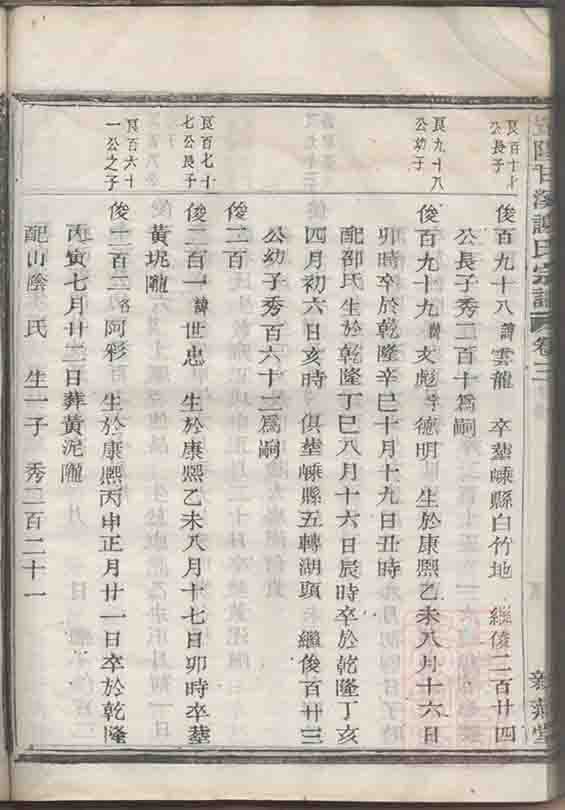 甘溪謝氏宗譜 卷三
良百十七
公長子
俊百九十八 諱雲龍 卒塟嵊縣白竹地 繼俊二百廿四
公長子秀二百十爲嗣
良九十八
公幼子
俊百九十九 諱文彪 字德明 生於康熙乙未八月十六日
卯時卒於乾隆辛巳十月十九日丑時
配邵氏生於乾隆丁巳八月十六日辰時卒於乾隆丁亥
四月初六日亥時 俱塟嵊縣五轉湖頭 繼俊百廿三
公幼子秀百六十二爲嗣
俊二百
良百七十
七公長子
俊二百一 諱世忠 生於康熙乙未八月十七日卯時卒塟
黄坭隴
良百六十
一公之子
俊二百二 名阿彩 生於康熙丙申正月廿一日卒於乾隆
丙寅七月廿二日葬黄泥隴
配山陰 氏 生一子 秀二百二十一